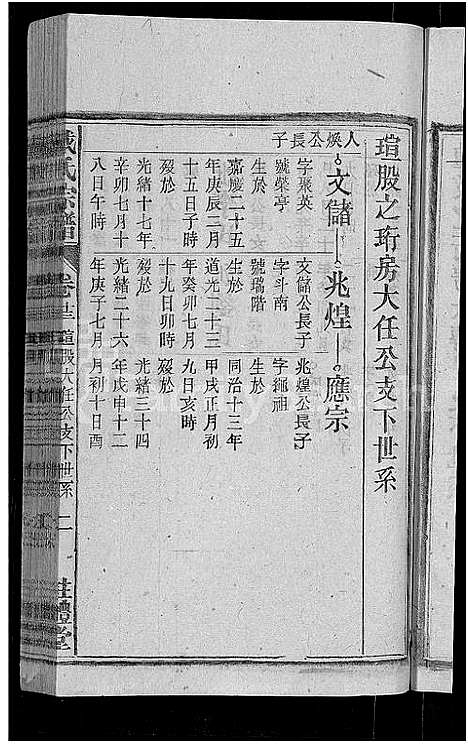 瑄股之珩房大任公支下世系
人煥公長子
文儲
兆煌
應宗
字聚英
號榮亭
生於
嘉慶二十五
年庚辰三月
十五日子時
歿於
光緒十七年
辛卯七月十
八日午時
文儲公長子
字斗南
號瑞階
生於
道光二十三
年癸卯七月
十九日卯時
歿於
光緒二十六
年庚子七月
兆煌公長子
字繩祖
生於
同治十三年
甲戌正月初
九日亥時
歿於
光緒三十四
年戊申十二
月初十日酉
氏宗譜
卷
瑄股大任公支下世系
二
禮堂